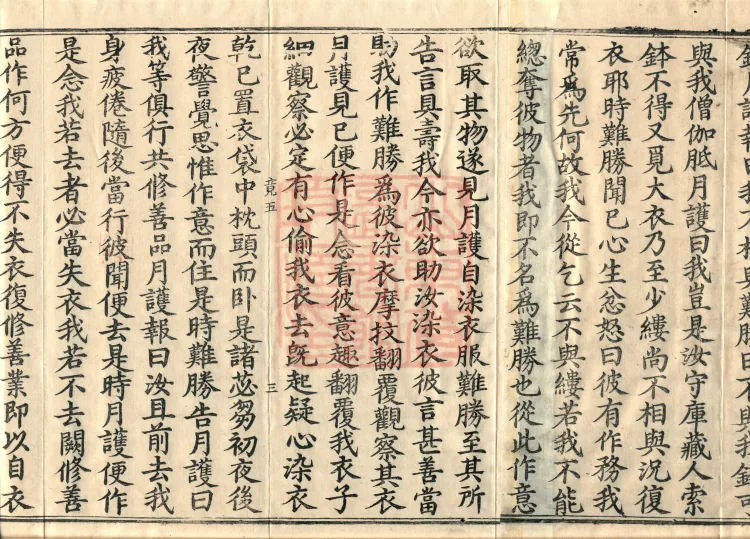 與我僧伽胝月護曰我豈是汝守庫藏人索
鉢不得又覓大衣乃至少縷尚不相與況復
衣耶時難勝聞已心生忿怒曰彼有作務我
常爲先何故我今從乞云不與縷若我不能
總奪彼物者我即不名爲難勝也從此作意
欲取其物遂見月護自染衣服難勝至其所
告言具壽我今亦欲助汝染衣彼言甚善當
助我作難勝爲彼染衣摩抆翻覆觀察其衣
月護見已便作是念看彼意趣翻覆我衣子
細觀察必定有心偷我衣去旣起疑心染衣
竟五 三
乾已置衣袋中枕頭而卧是諸苾芻初夜後
夜警覺思惟作意而住是時難勝告月護曰
我等俱行共修善品月護報曰汝且前去我
身疲倦隨後當行彼聞便去是時月護便作
是念我若去者必當失衣我若不去闕修善
品作何方便得不失衣復修善業即以自衣